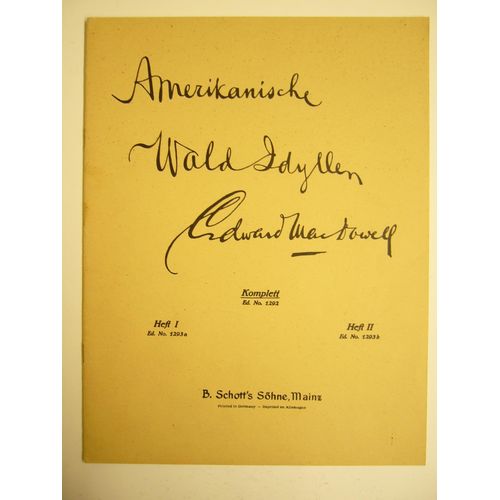 Amerikanische
Wald Idyllen
Edward MacDowell
Komplett
Ed. No. 1292
Heft I
Ed. No. 1293a
Heft II
Ed. No. 1293b
B. Schott's Söhne, Mainz
Printed in Germany — Imprimé en Allemagne